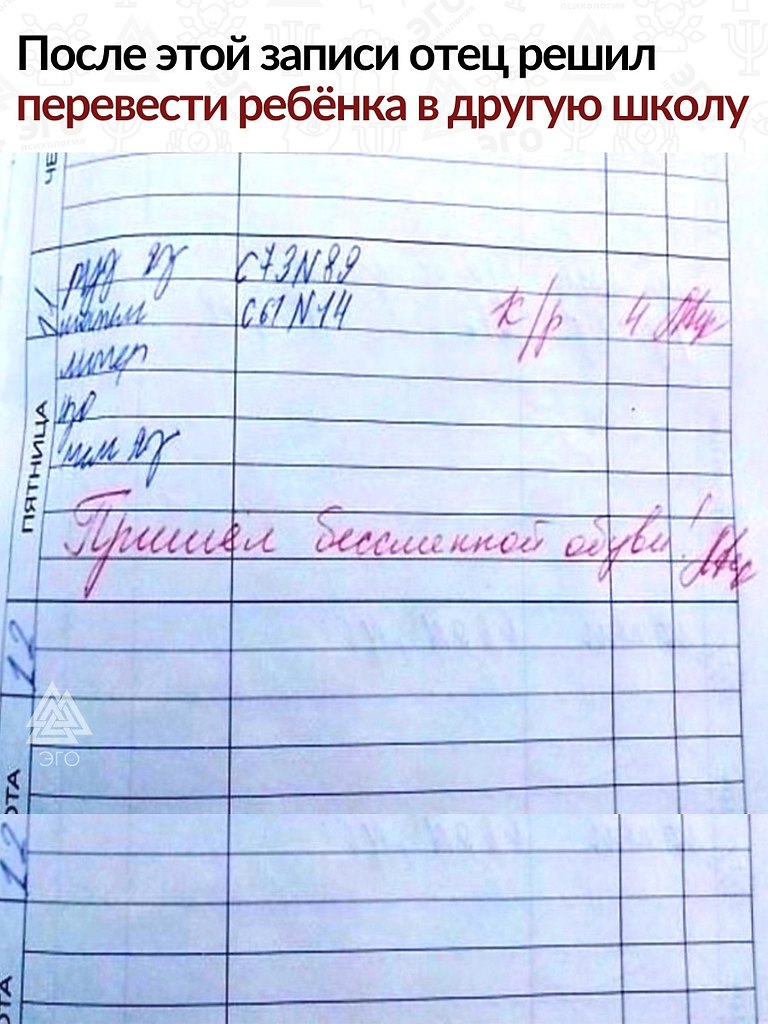 После этой записи отец решил
перевести ребёнка в другую школу
ЧЕ
11
ПЯТНИЦА
рус яз С73N89
матем С61N14 к/р 4
литер
изо
чт яз
Пришёл бессменной обуви!
12
ЭГО
ОТА
12
ОТА